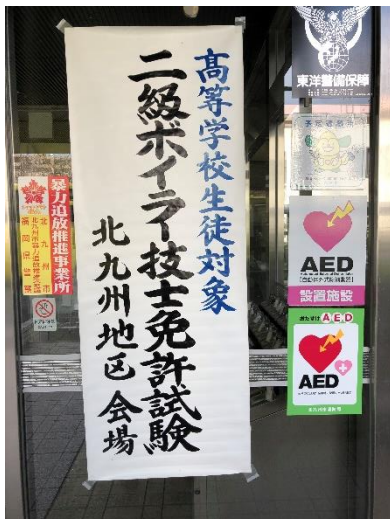 高等学校生徒対象
二級ボイラー技士免許試験
北九州地区 会場
暴力追放推進事業所
北九州市
福岡県警察
東洋警備保障
AED
設置施設
AED
AED